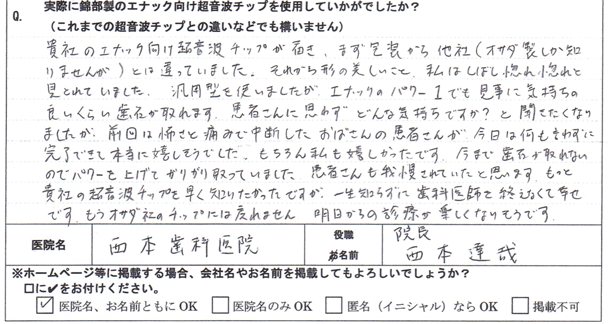 Q. 実際に錦部製のエナック向け超音波チップを使用していかがでしたか?
(これまでの超音波チップとの違いなどでも構いません)
貴社のエナック向け超音波チップが届き、まず包装から他社(オサダ製しか知
りませんが)とは違っていました。それから形の美しいこと、私はしばし惚れ惚れと
見とれていました。汎用型を使いましたが、エナックのパワー1でも見事に気持ちの
良いくらい歯石が取れます。患者さんに思わず どんな気持ちですか?と聞きたくなり
ましたが、前回は怖さと痛みで中断したおばさんの患者さんが、今日は何も言わずに
完了できて本当に嬉しそうでした。もちろん私も嬉しかったです。今まで歯石が取れない
のでパワーを上げてガリガリ取っていました。患者さんも我慢されていたと思います。もっと
貴社の超音波チップを早く知りたかったですが、一生知らずに歯科医師を終えなくて幸せ
です。もうオサダ社のチップには戻れません。明日からの診療が楽しくなりそうです。
医院名 西本歯科医院 役職 お名前 院長 西本達哉
※ホームページ等に掲載する場合、会社名やお名前を掲載してもよろしいでしょうか?
□に✔をお付けください。
☑医院名、お名前ともにOK □医院名のみOK □匿名(イニシャル)ならOK □掲載不可